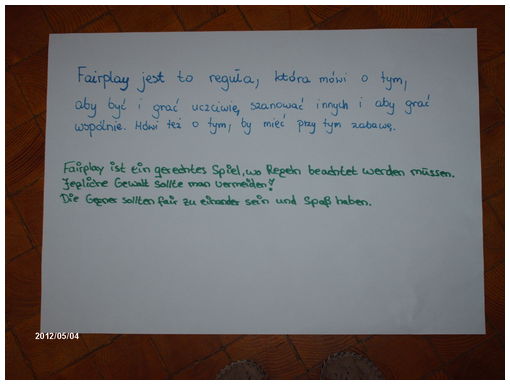 Fairplay jest to reguła, która mówi o tym,
aby być i grać uczciwie, szanować innych i aby grać
wspólnie. Mówi też o tym, by mieć przy tym zabawę.
Fairplay ist ein gerechtes Spiel, wo Regeln beachtet werden müssen.
Jegliche Gewalt sollte man vermeiden!
Die Gegner sollten fair zu einander sein und Spaß haben.
2012/05/04